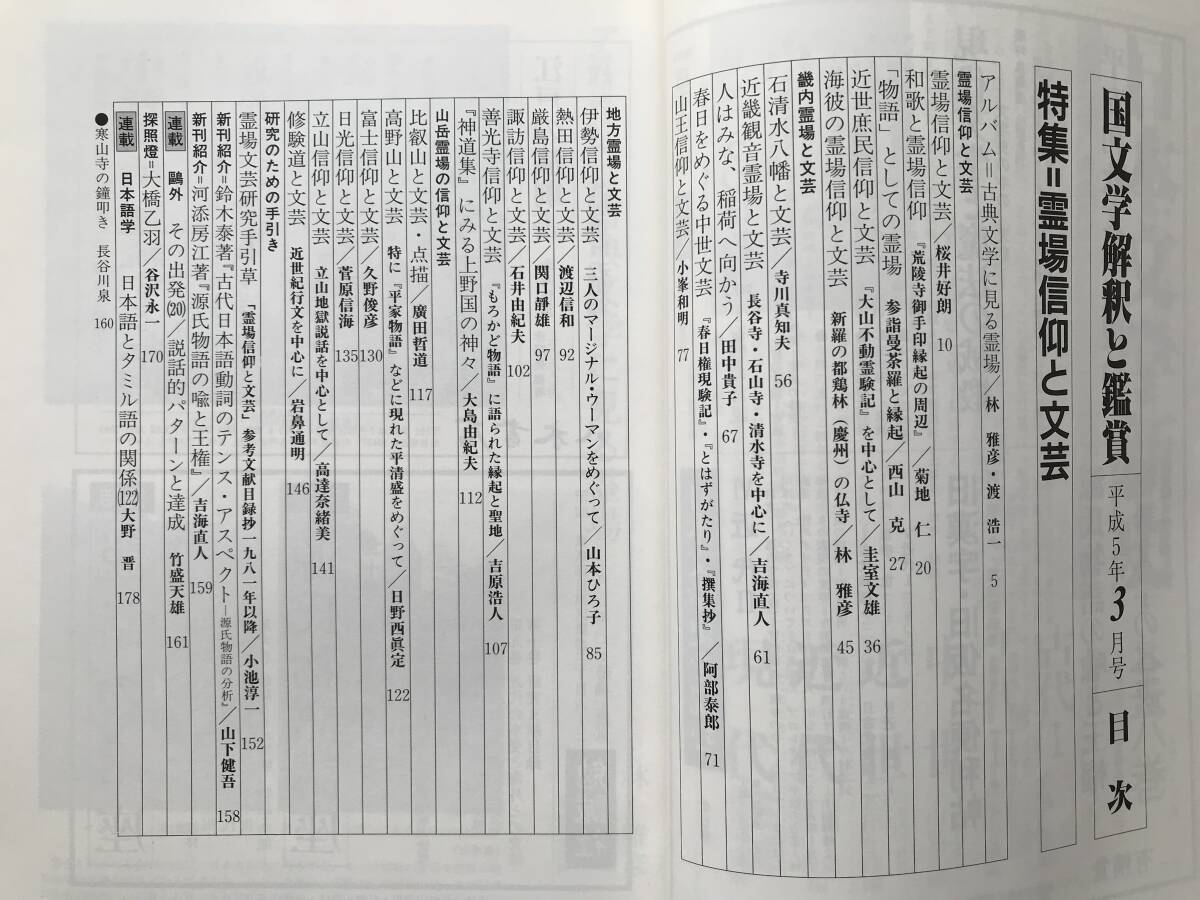 国文学解釈と鑑賞 平成5年3月号 目次
特集=霊場信仰と文芸
アルバム=古典文学に見る霊場/林 雅彦・渡 浩一 5
霊場信仰と文芸
霊場信仰と文芸/桜井好朗 10
和歌と霊場信仰 『荒陵寺御手印縁起の周辺』/菊地 仁 20
「物語」としての霊場 参詣曼荼羅と縁起/西山 克 27
近世庶民信仰と文芸 『大山不動霊験記』を中心として/圭室文雄 36
海彼の霊場信仰と文芸 新羅の都鶏林(慶州)の仏寺/林 雅彦 45
畿内霊場と文芸
石清水八幡と文芸/寺川真知夫 56
近畿観音霊場と文芸 長谷寺・石山寺・清水寺を中心に/吉海直人 61
人はみな、稲荷へ向かう/田中貴子 67
春日をめぐる中世文芸 『春日権現験記』・『とはずがたり』・『撰集抄』/阿部泰郎 71
山王信仰と文芸/小峯和明 77
地方霊場と文芸
伊勢信仰と文芸 三人のマージナル・ウーマンをめぐって/山本ひろ子 85
熱田信仰と文芸/渡辺信和 92
厳島信仰と文芸/関口靜雄 97
諏訪信仰と文芸/石井由紀夫 102
善光寺信仰と文芸 『もろかど物語』に語られた縁起と聖地/吉原浩人 107
『神道集』にみる上野国の神々/大島由紀夫 112
山岳霊場の信仰と文芸
比叡山と文芸・点描/廣田哲道 117
高野山と文芸 特に『平家物語』などに現れた平清盛をめぐって/日野西眞定 122
富士信仰と文芸/久野俊彦 130
日光信仰と文芸/菅原信海 135
立山信仰と文芸 立山地獄説話を中心として/高達奈緒美 141
修験道と文芸 近世紀行文を中心に/岩鼻通明 146
研究のための手引き
霊場文芸研究手引草 「霊場信仰と文芸」参考文献目録抄一九八一年以降/小池淳一 152
新刊紹介=鈴木泰著『古代日本語動詞のテンス・アスペクト―源氏物語の分析』/山下健吾 158
新刊紹介=河添房江著『源氏物語の喩と王権』/吉海直人 159
連載 鷗外 その出発(20)/説話的パターンと達成 竹盛天雄 161
探照燈=大橋乙羽/谷沢永一 170
連載 日本語学 日本語とタミル語の関係(122)大野 晋 178
●寒山寺の鐘叩き 長谷川泉 160